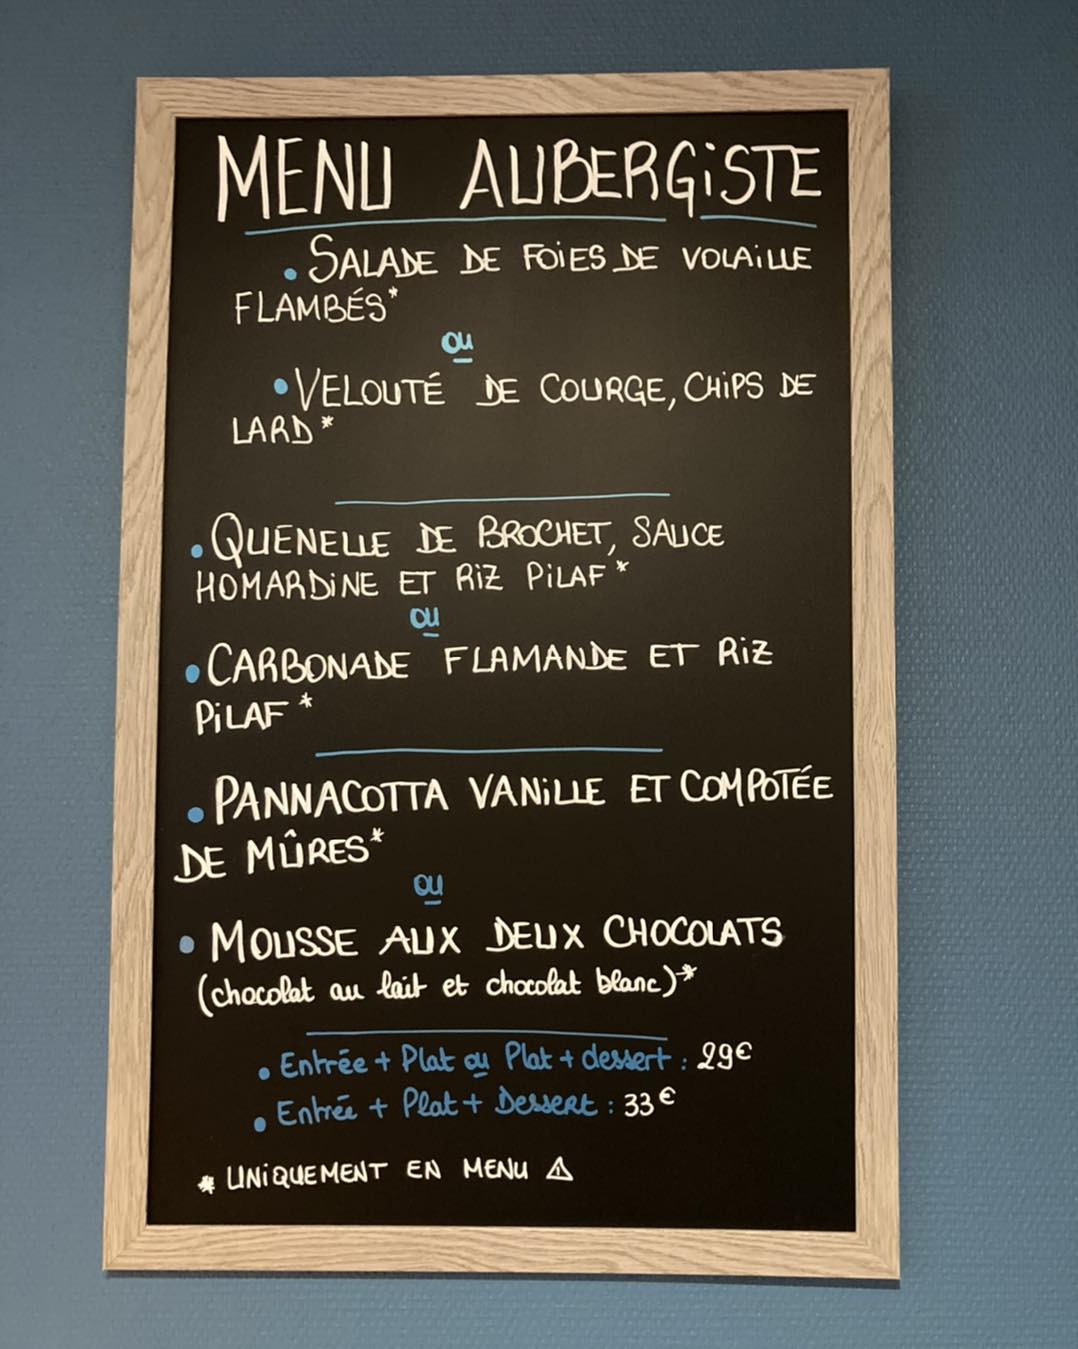 MENU AUBERGiSTE
• SALADE DE FOiES DE VOLAiLLE
FLAMBÉS*
ou
• VELOUTÉ DE COURGE, CHiPS DE
LARD*
• QUENELLE DE BROCHET, SAUCE
HOMARDiNE ET RiZ PiLAF*
ou
• CARBONADE FLAMANDE ET RiZ
PiLAF*
• PANNACOTTA VANiLLE ET COMPOTÉE
DE MÛRES*
ou
• MOUSSE AUX DEUX CHOCOLATS
(chocolat au lait et chocolat blanc)*
• Entrée + Plat ou Plat + dessert : 29€
• Entrée + Plat + Dessert : 33€
* UNiQUEMENT EN MENU ⚠